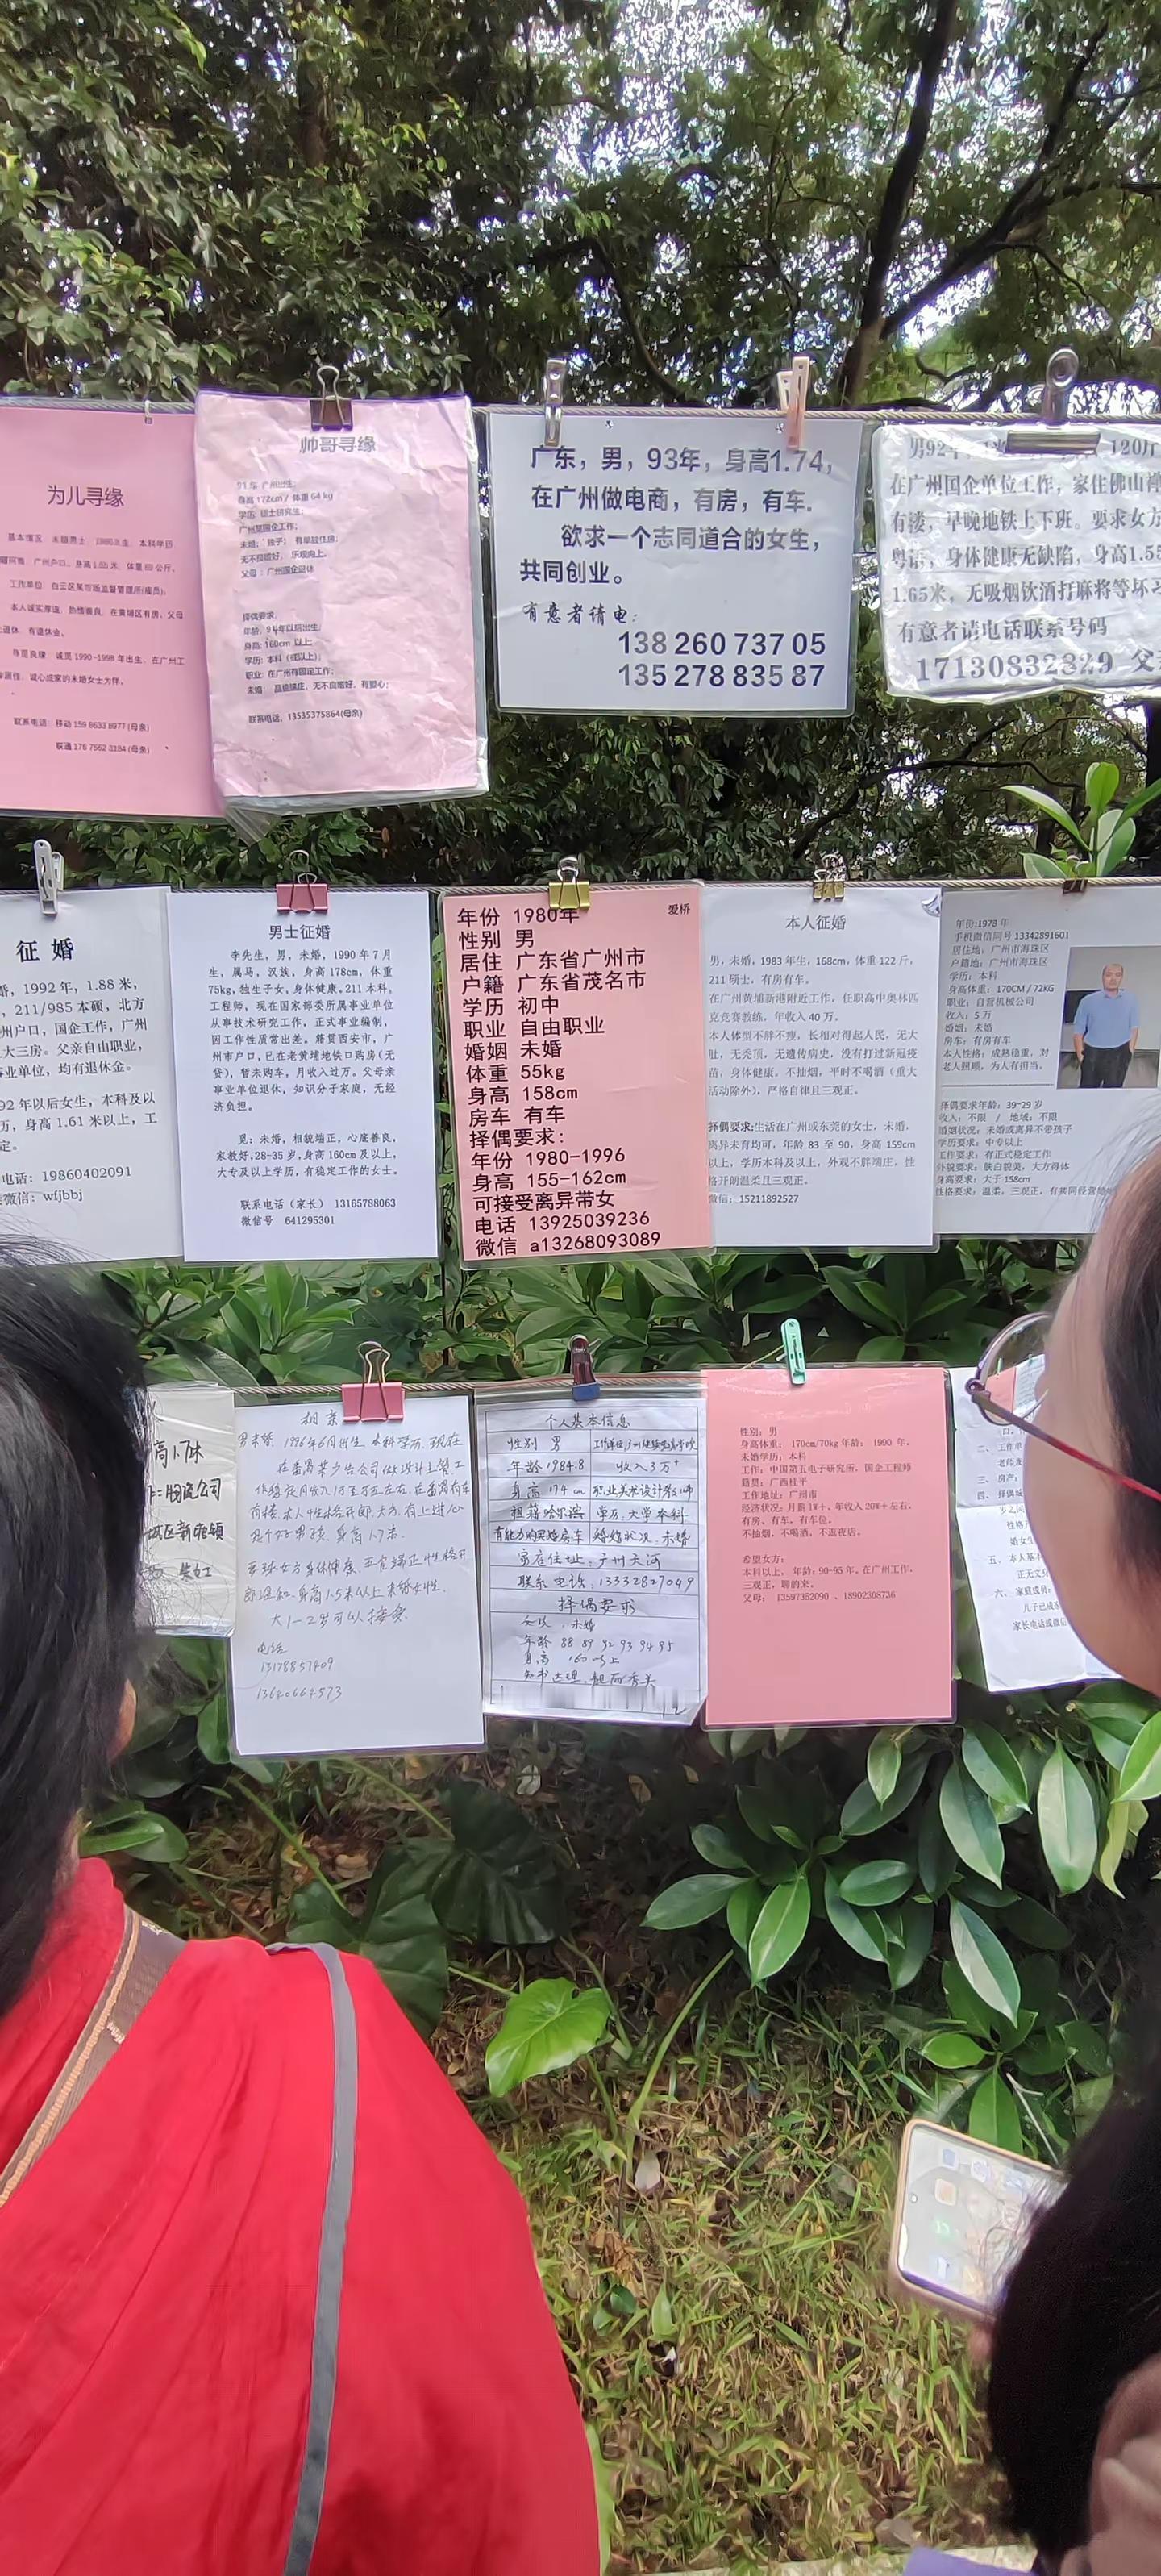 为儿寻缘
基本情况 未婚男士 本科学历
广州户口，身高1.65米，体重69公斤。
工作单位 白云区某市场监督管理所(雇员)。
本人诚实厚道，热情善良，在黄埔区有房，父母
退休，有退休金。
寻觅良缘：诚觅1990-1998年出生，在广州工
居住，诚心成家的未婚女士为伴。
联系电话：移动159 8633 8977(母亲)
联通176 7562 3184(母亲)
帅哥寻缘
91年 广州出生；
身高172cm/ 体重64 kg
学历：硕士研究生；
广州某国企工作；
未婚；独子；有单独住房；
无不良嗜好，乐观向上。
父母：广州国企退休
择偶要求：
年龄，91年以后出生；
身高：160cm 以上；
学历：本科（或以上）；
职业：在广州有固定工作；
未婚；品貌端庄，无不良嗜好，有爱心；
联系电话，13535375864(母亲)
广东，男，93年，身高1.74，
在广州做电商，有房，有车.
欲求一个志同道合的女生，
共同创业。
有意者请电：
138 260 737 05
135 278 835 87
男92年 120斤
在广州国企单位工作，家住佛山禅
有楼，早晚地铁上下班。要求女方
粤语，身体健康无缺陷，身高1.55
1.65米，无吸烟饮酒打麻将等坏习
有意者请电话联系号码
17130832829 父亲
征 婚
婚，1992年，1.88米，
，211/985本硕，北方
州户口，国企工作，广州
大三房。父亲自由职业，
业单位，均有退休金。
92年以后女生，本科及以
历，身高1.61米以上，工
定。
电话：19860402091
微信：wfjbbj
男士征婚
李先生，男，未婚，1990年7月
生，属马，汉族，身高178cm，体重
75kg，独生子女，身体健康。211本科，
工程师，现在国家部委所属事业单位
从事技术研究工作，正式事业编制，
因工作性质常出差。籍贯西安市，广
州市户口，已在老黄埔地铁口购房（无
贷），暂未购车，月收入过万。父母亲
事业单位退休，知识分子家庭，无经
济负担。
觅：未婚，相貌端正，心底善良，
家教好，28-35岁，身高160cm及以上，
大专及以上学历，有稳定工作的女士。
联系电话（家长） 13165788063
微信号 641295301
年份 1980年
爱桥
性别 男
居住 广东省广州市
户籍 广东省茂名市
学历 初中
职业 自由职业
婚姻 未婚
体重 55kg
身高 158cm
房车 有车
择偶要求：
年份 1980-1996
身高 155-162cm
可接受离异带女
电话 13925039236
微信 a13268093089
本人征婚
男，未婚，1983年生，168cm，体重122斤，
211硕士，有房有车。
在广州黄埔新港附近工作，任职高中奥林匹
克竞赛教练，年收入40万。
本人体型不胖不瘦，长相对得起人民，无大
肚，无秃顶，无遗传病史，没有打过新冠疫
苗，身体健康。不抽烟，平时不喝酒（重大
活动除外），严格自律且三观正。
择偶要求:生活在广州或东莞的女士，未婚，
离异未育均可，年龄83至90，身高159cm
以上，学历本科及以上，外观不胖端庄，性
格开朗温柔且三观正。
微信：15211892527
年份:1978年
手机微信同号13342891601
居住地：广州市海珠区
户籍地：广州市海珠区
学历：本科
身高体重：170CM/72KG
职业：自营机械公司
收入：5万
婚姻：未婚
房车：有房有车
本人性格：成熟稳重，对
老人照顾，为人有担当。
择偶要求年龄：39~29岁
收入：不限 / 地域：不限
婚姻状况：未婚或离异不带孩子
学历要求：中专以上
工作要求：有正式稳定工作
外貌要求：肤白貌美，大方得体
身高要求：大于158cm
性格要求：温柔，三观正，有共同经营
高1.7米
物流公司
城区新雅镇
相亲
男未婚，1996年6月出生 本科学历，现在
在番禺某公司做设计主管工
有楼 本人性格开朗，大方，有上进心
是个好男孩，身高1.7米.
要求女方身体健康、五官端正性格开
朗温和、身高1.5米以上未婚女性.
大1-2岁可以接受
电话
13178857409
13640664573
个人基本信息
性别 男
年龄 1984.8 收入3万+
身高 174cm 职业美术设计教师
祖籍 哈尔滨 学历、大学本科
有能力购买婚房车 婚姻状况：未婚
家庭住址：广州天河
联系电话：13332827049
择偶要求
女孩，未婚
年龄 88 89 92 93 94 95
身高 160以上
知书达理、靓丽秀美
性别：男
身高体重：170cm/70kg 年龄：1990年，
未婚学历：本科
工作：中国第五电子研究所，国企工程师
籍贯：广西桂平
工作地址：广州市
经济状况：月薪1W+，年收入20W+左右，
有房，有车，有车位。
不抽烟，不喝酒，不逛夜店。
希望女方：
本科以上，年龄：90-95年，在广州工作，
三观正，聊的来。
父母：13597352090、18902308736
二、工作单
三、房产：
四、择偶
五、本人基本
六、家庭成员：
儿子已成家
家长电话或微信